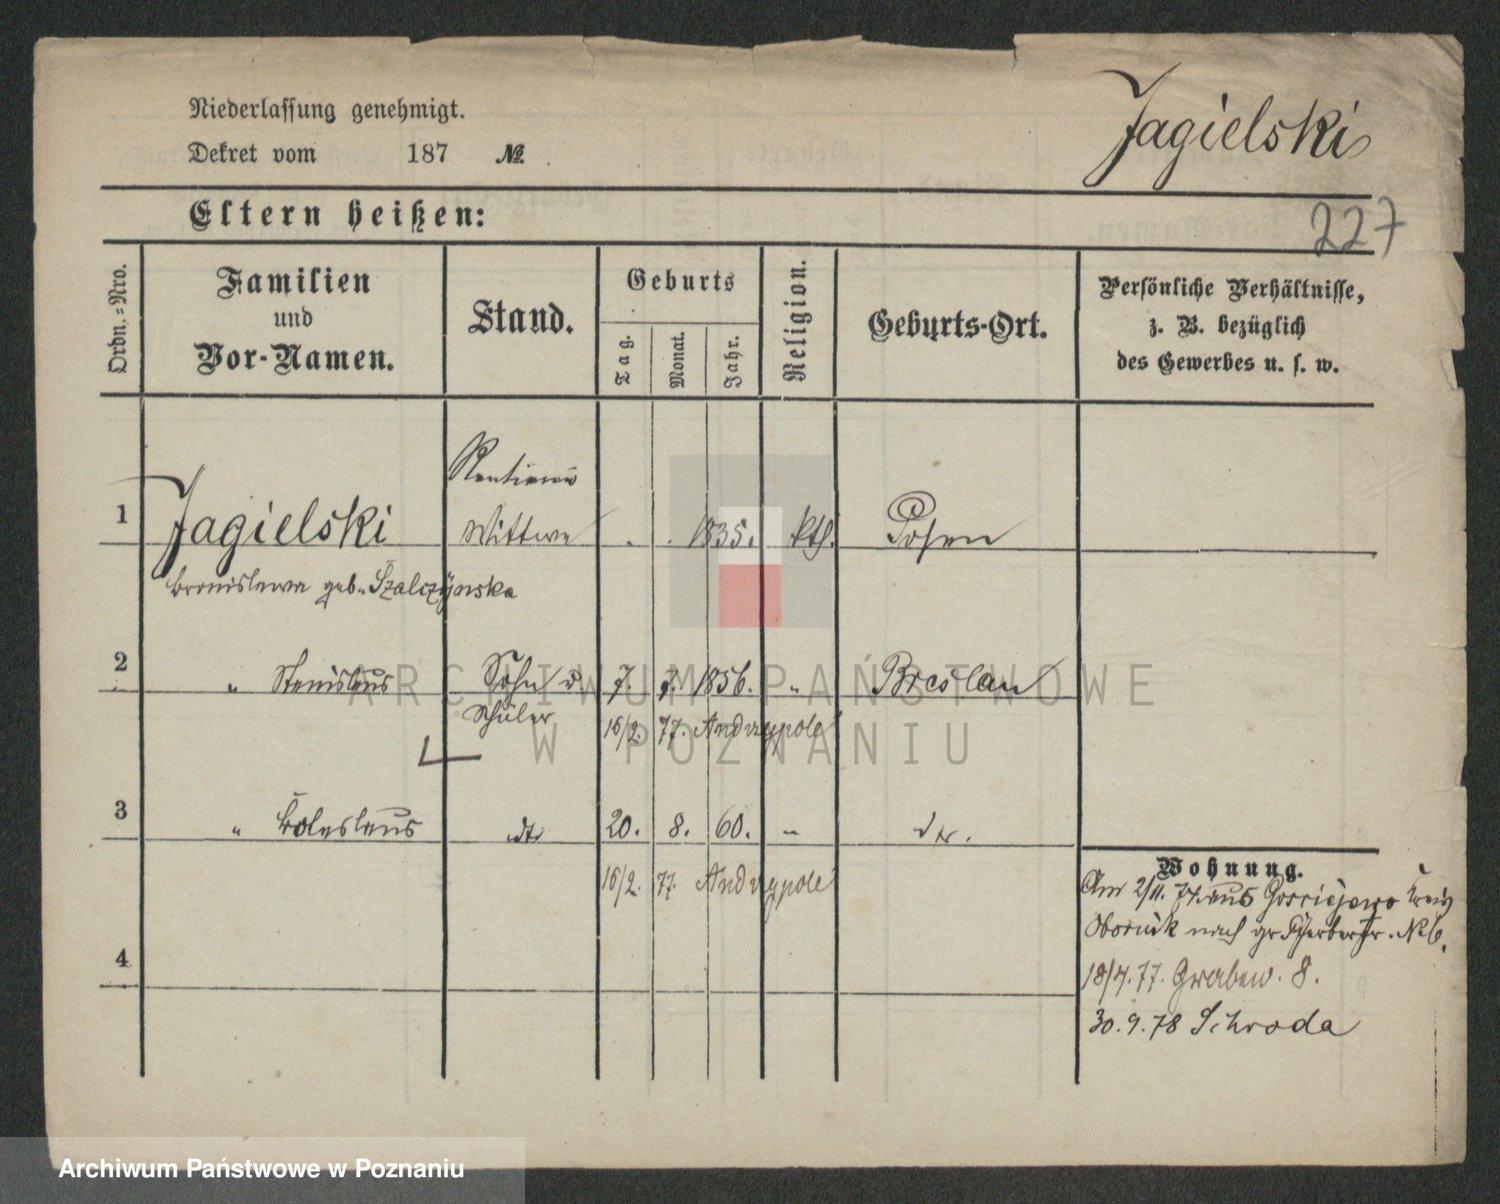 Niederlassung genehmigt.
Dekret vom 187 №
Jagielski
Eltern heißen:
227
Ordn.-Nro.
Familien
und
Vor-Namen.
Stand.
Geburts
Tag.
Monat.
Jahr.
Religion.
Geburts-Ort.
Persönliche Verhältnisse,
z. B. bezüglich
des Gewerbes u. s. w.
1 Jagielski
Wittwe
1835. kth. Posen
Bronislawa geb. Szalczynska
2 " Stanislaus Sohn u 7. 7. 1856. " Breslau
Schüler 16/2. 77. Andrzypole
3 " Boleslaus dto 20. 8. 60. " dto.
16/2. 77. Andrzypole
4
Wohnung.
Am 2/11. 74. aus Gosciejewo Kreis
Obornik nach gr. Gerberstr. No 6.
18/4. 77. Graben. 8.
30. 9. 78 Schroda
ARCHIWUM PAŃSTWOWE
W POZNANIU
Archiwum Państwowe w Poznaniu